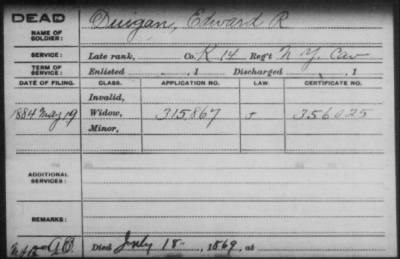 DEAD
NAME OF SOLDIER: Durgan, Edward R
SERVICE: Late rank, Co. K 14 Reg't N.Y. Cav
TERM OF SERVICE: Enlisted , 1 Discharged , 1
DATE OF FILING. CLASS. APPLICATION NO. LAW. CERTIFICATE NO.
Invalid,
1884 May 19 Widow, 315867 356025
Minor,
ADDITIONAL SERVICES:
REMARKS:
Died July 18 , 1869, at